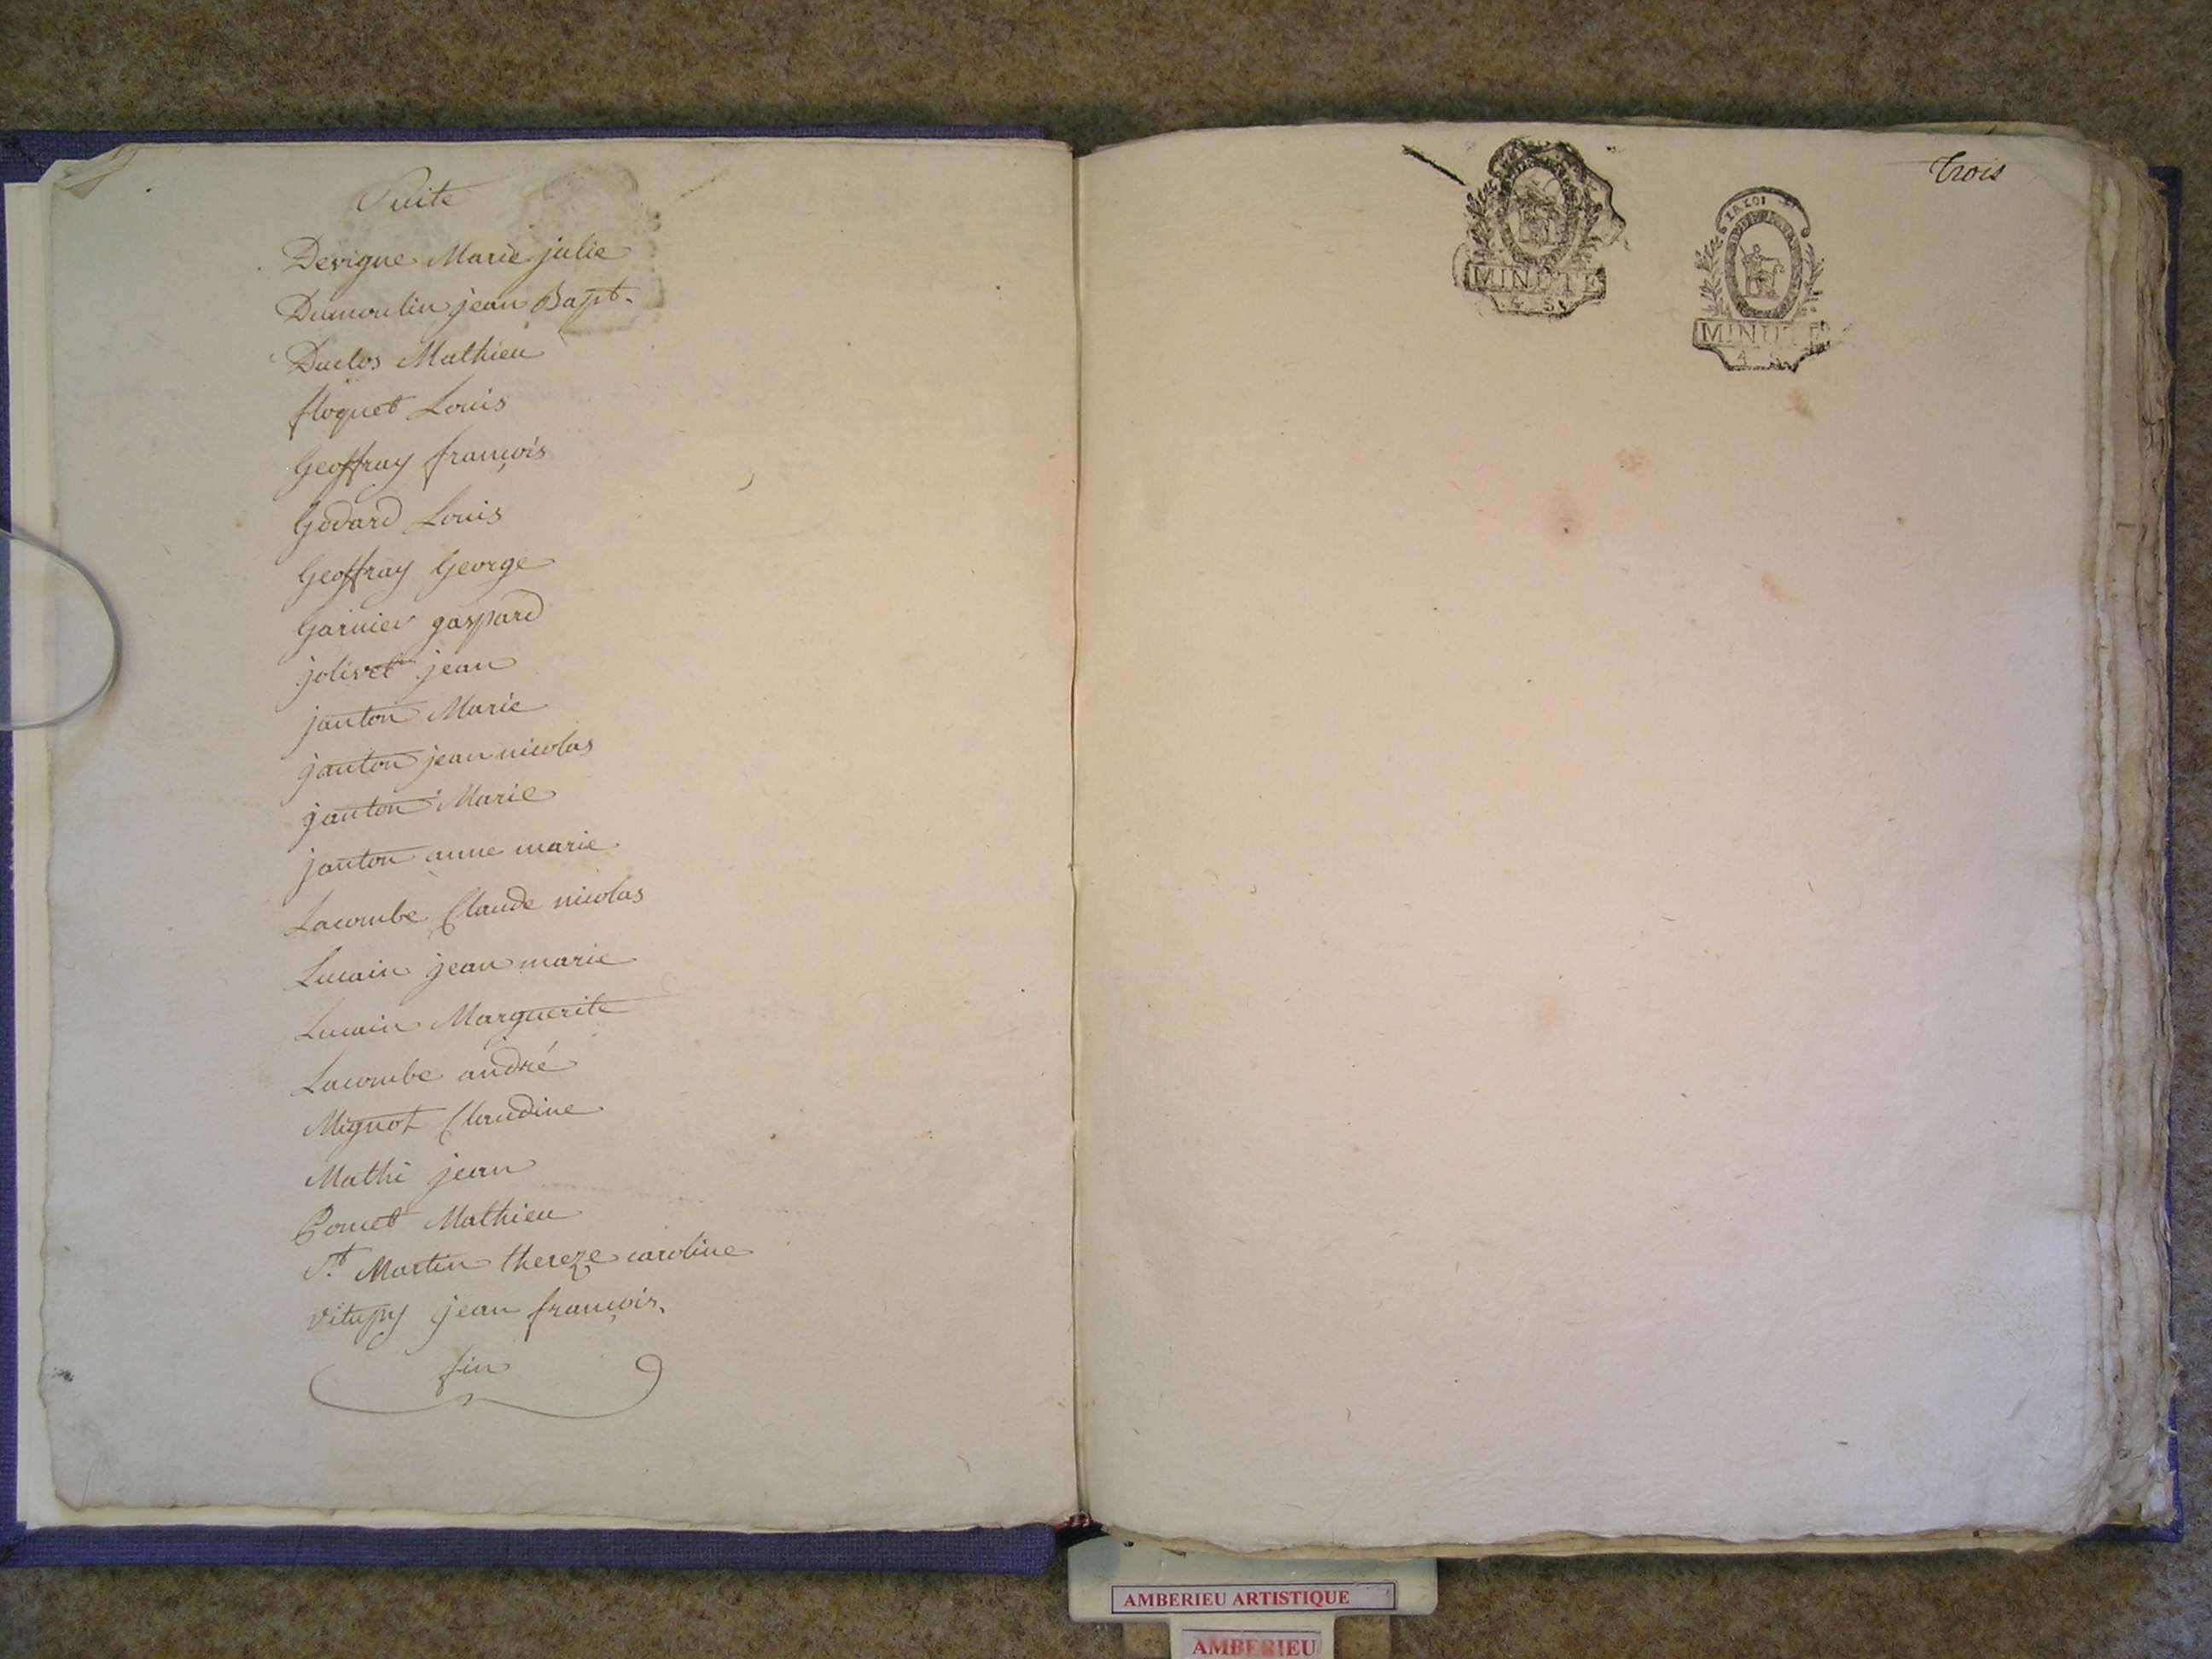 Suite
Devigne Marie julie
Dumoulin jean Bapt.
Duclos Mathieu
floquet Louis
Geoffray françois
Godard Louis
Geoffray George
Garnier gaspard
jolivet jean
janton Marie
janton jean nicolas
janton Marie
janton anne marie
Lacombe Claude nicolas
Lucain jean marie
Lucain Marguerite
Lacombe andré
Mignot Claudine
Mathi jean
Pomet Mathieu
St Martin thereze caroline
Vitapy jean françois.
fin
Trois
MINUTE
MINUTE
AMBERIEU ARTISTIQUE
AMBERIEU